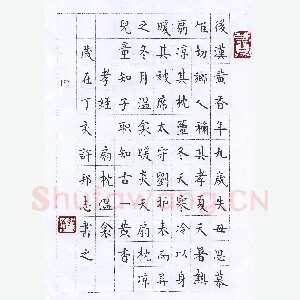 後漢黃香年九歲失母思慕
惟切鄉人稱其孝夏天暑熱
扇凉其枕簟冬天寒冷以身
暖其被席太守劉護表而異
之冬月溫衾暖炎天扇枕凉
兒童知子職知古一黃香
孝經 扇枕溫衾
歲在丁亥許邦志書之
Shufawang.CN